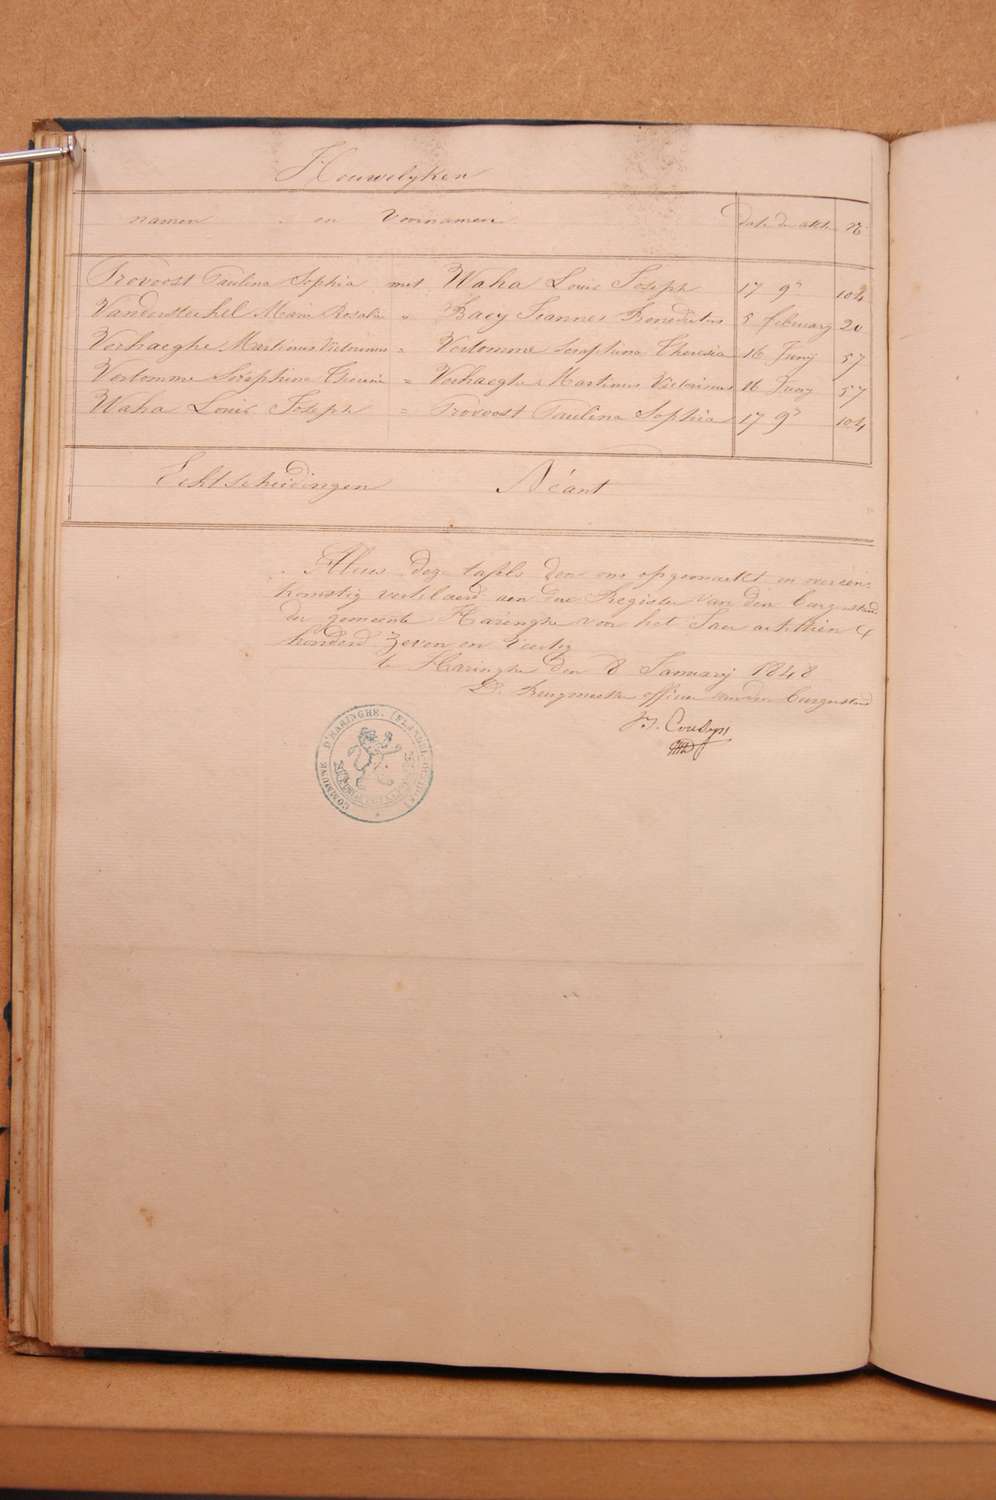 Houwelyken
namen en Voornamen date der akte No
Provoost Paulina Sophia met Waha Louis Joseph 17 9r 104
Vandersteehel Marie Rosalie " Baey Joannes Benedictus 5 february 20
Verhaeghe Martinus Victorinus = Vertomme Seraphina Theresia 16 Juny 57
Vertomme Seraphine Theresia = Verhaeghe Martinus Victorinus 16 Juny 57
Waha Louis Joseph = Provoost Paulina Sophia 17 9r 104
Echtscheidingen Néant
Aldus deze tafels door ons opgemaekt en overeen-
komstig verklaerd aen den Register van den burgerstand
der gemeente Haringhe voor het Jaer achttien
honderd zeven en veertig
te Haringhe den 8 January 1848
De Burgmeester officier van den burgerstand
COMMUNE D'HARINGHE. (FLANDRE OCCIDENT.)